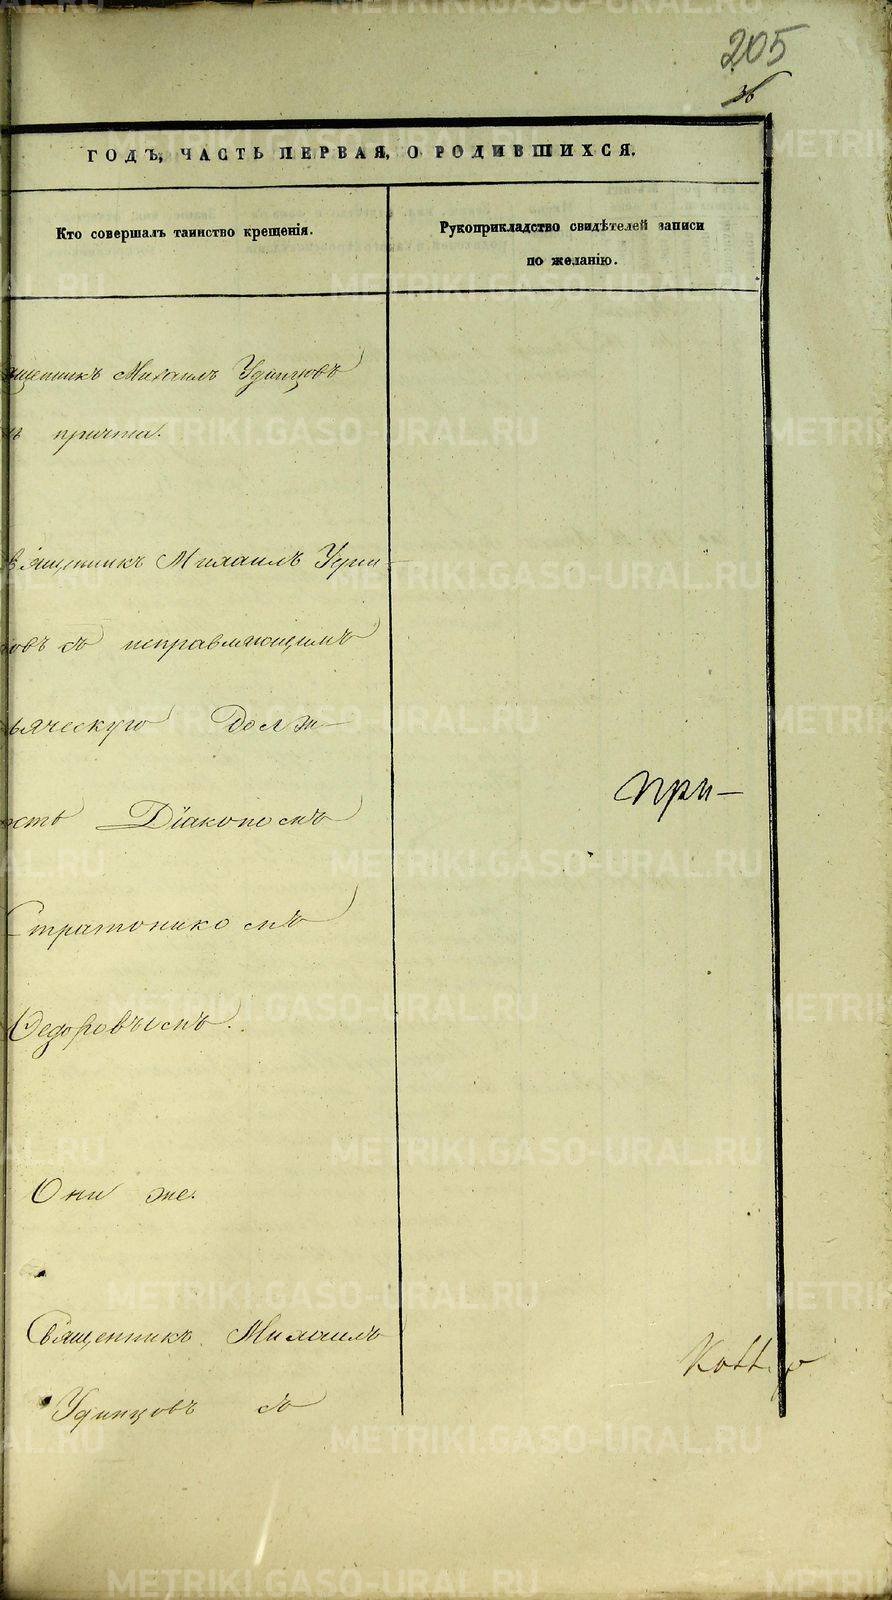 205
36
ГОДЪ, ЧАСТЬ ПЕРВАЯ, О РОДИВШИХСЯ.
Кто совершалъ таинство крещенія.
Рукоприкладство свидѣтелей записи
по желанію.
ященникъ Михаилъ Удинцовъ
причта.
Священникъ Михаилъ Удин-
овъ съ исправляющимъ
ьяческую долж-
сть Діакономъ
Стратоникомъ
Федоровымъ.
При-
Они же.
Священникъ Михаилъ
Удинцовъ съ
METRIKI.GASO-URAL.RU